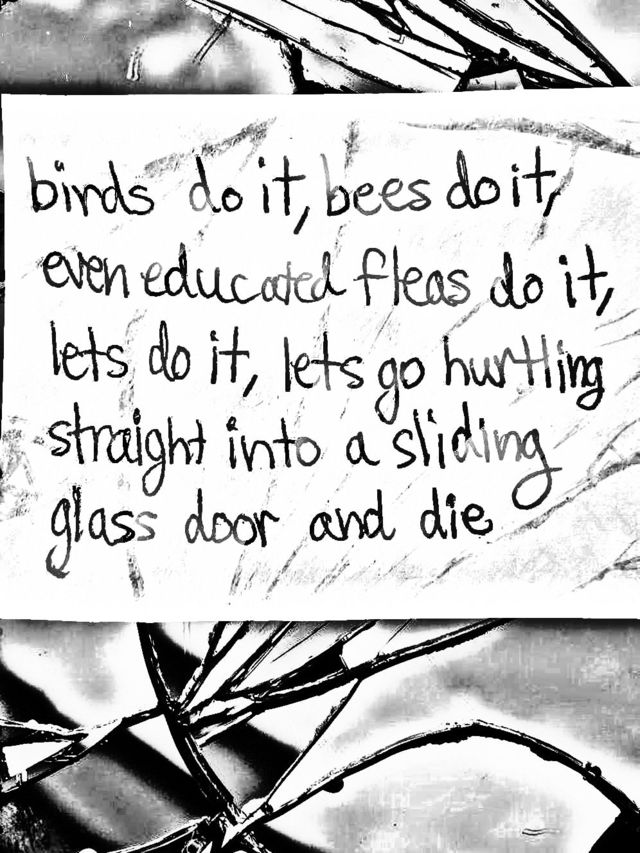 birds do it, bees do it,
even educated fleas do it,
lets do it, lets go hurtling
straight into a sliding
glass door and die